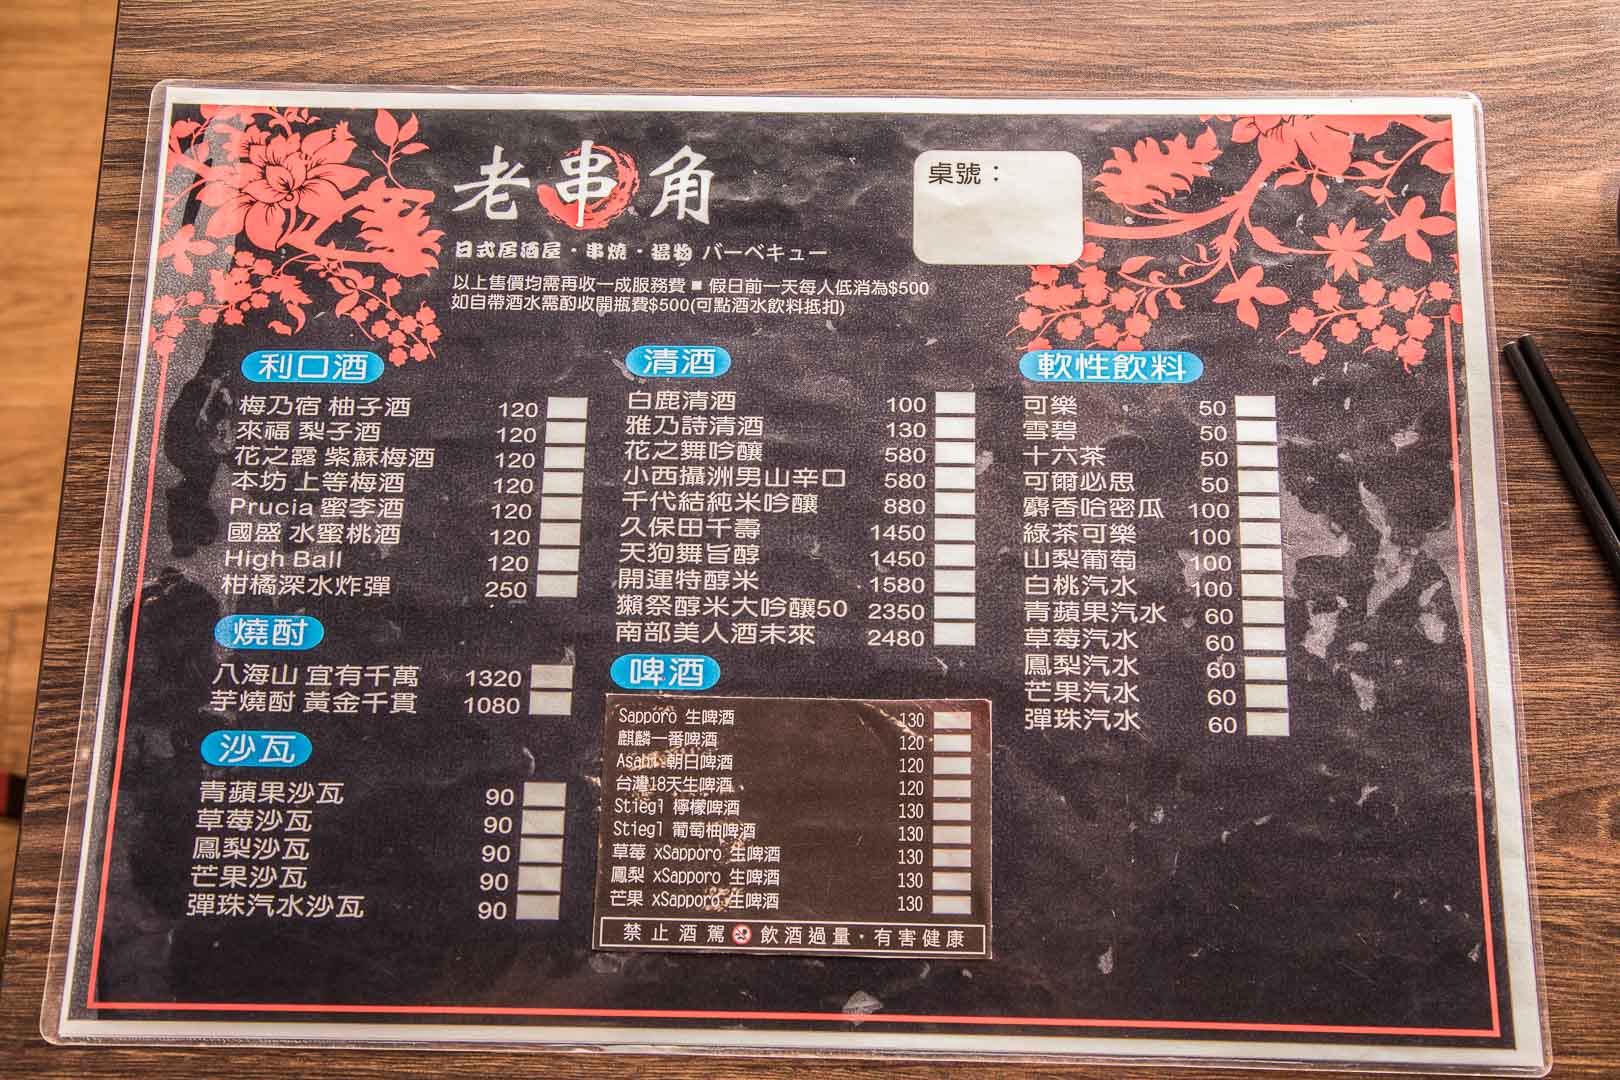 老串角
桌號：
日式居酒屋・串燒・揚物 バーベキュー
以上售價均需再收一成服務費 ■ 假日前一天每人低消為$500
如自帶酒水需酌收開瓶費$500(可點酒水飲料抵扣)
利口酒
梅乃宿 柚子酒 120
來福 梨子酒 120
花之露 紫蘇梅酒 120
本坊 上等梅酒 120
Prucia 蜜李酒 120
國盛 水蜜桃酒 120
High Ball 120
柑橘深水炸彈 250
燒酎
八海山 宜有千萬 1320
芋燒酎 黃金千貫 1080
沙瓦
青蘋果沙瓦 90
草莓沙瓦 90
鳳梨沙瓦 90
芒果沙瓦 90
彈珠汽水沙瓦 90
清酒
白鹿清酒 100
雅乃詩清酒 130
花之舞吟釀 580
小西攝洲男山辛口 580
千代結純米吟釀 880
久保田千壽 1450
天狗舞旨醇 1450
開運特醇米 1580
獺祭醇米大吟釀50 2350
南部美人酒未來 2480
啤酒
Sapporo 生啤酒 130
麒麟一番啤酒 120
Asahi 朝日啤酒 120
台灣18天生啤酒 120
Stiegl 檸檬啤酒 130
Stiegl 葡萄柚啤酒 130
草莓 xSapporo 生啤酒 130
鳳梨 xSapporo 生啤酒 130
芒果 xSapporo 生啤酒 130
禁止酒駕 飲酒過量・有害健康
軟性飲料
可樂 50
雪碧 50
十六茶 50
可爾必思 50
麝香哈密瓜 100
綠茶可樂 100
山梨葡萄 100
白桃汽水 100
青蘋果汽水 60
草莓汽水 60
鳳梨汽水 60
芒果汽水 60
彈珠汽水 60